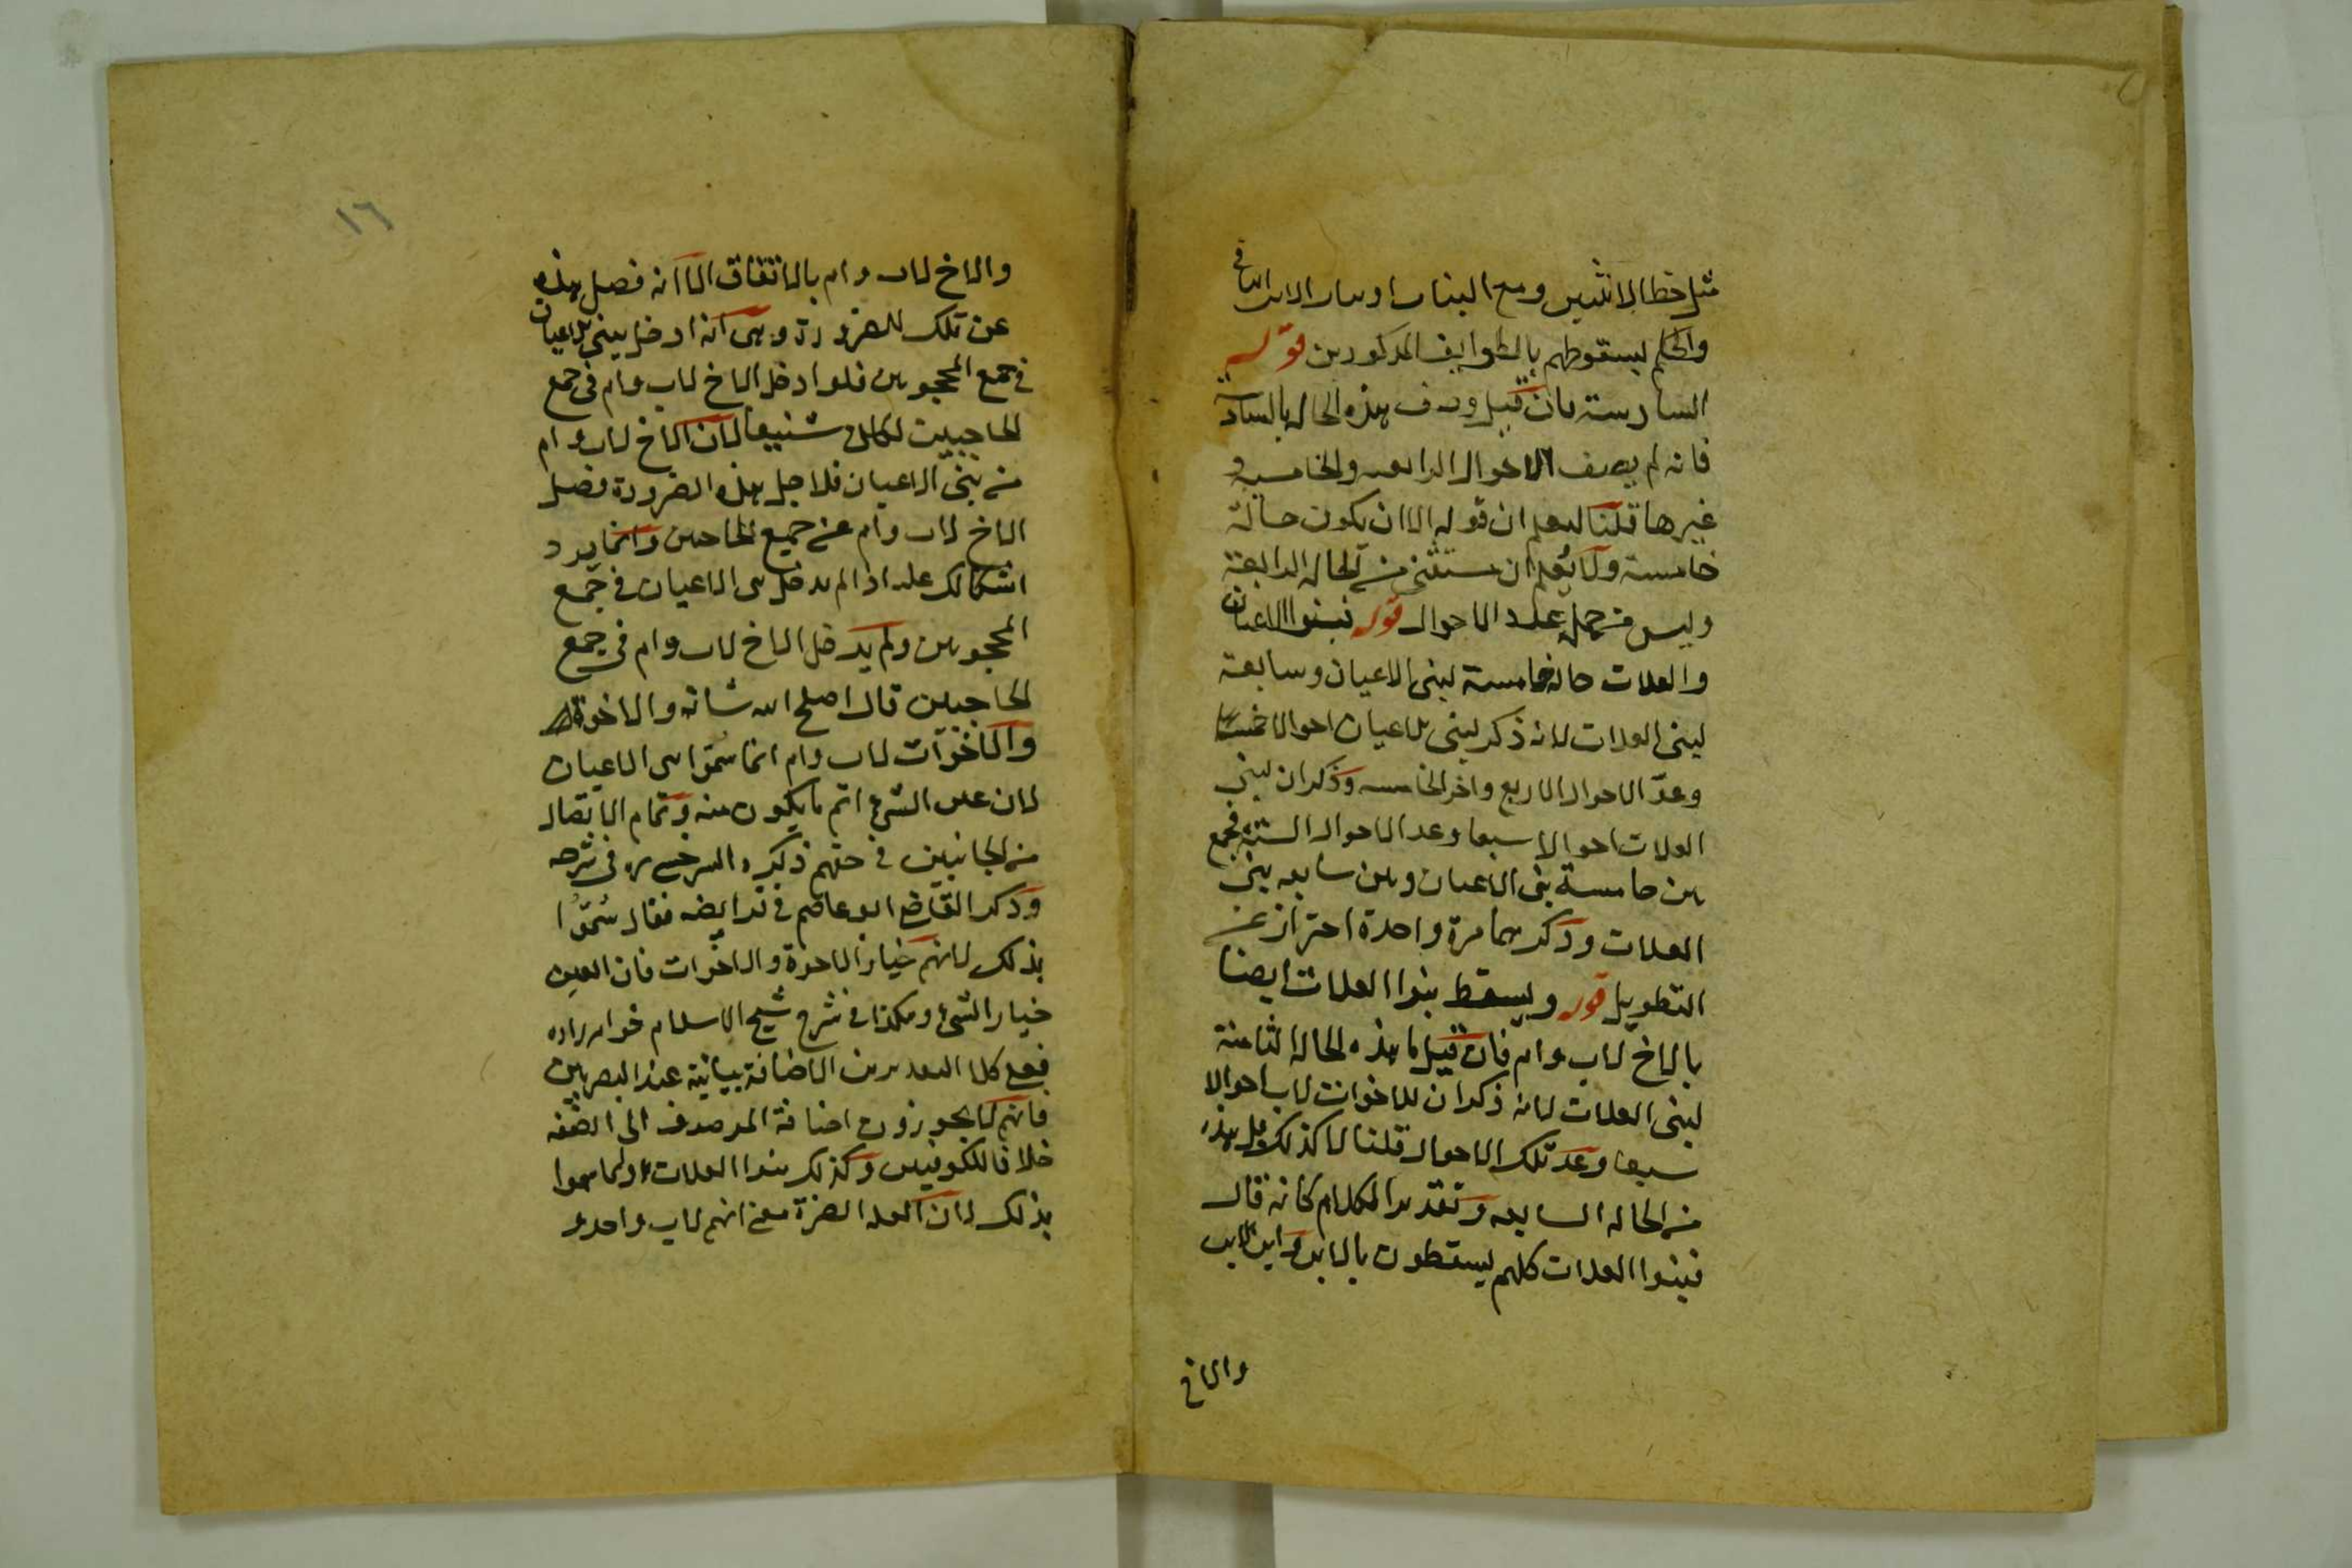 مثل حظ الانثيين ومع البنات او بنات الابن الباقي
والحكم بسقوطهم بالطوايف المذكورين قوله
السادسة فان قيل وصف هذه الحالة بالسادسة
فانه لم يصف الاحوال الرابعه والخامسه و
غيرها قلنا ليعلم ان قوله الا ان يكون حالة
خامسة ولا يعلم ان مستثنى من الحالة الرابعة
وليس من جملة عدد الاحوال قوله فبنوا الاعيان
والعلات حالة خامسة لبنى الاعيان وسابعة
لبنى العلات لانه ذكر لبنى الاعيان احوالا خمسا
وعدّ الاحوال الاربع واخر الخامسه وذكر ان لبنى
العلات احوالا سبعا وعد الاحوال الستة فجمع
بين خامسة بنى الاعيان وبين سابعه بنى
العلات وذكرهما مرة واحدة احتراز عن
التطويل قوله ويسقط بنوا العلات ايضا
بالاخ لاب وام فان قيل ما هذه الحالة الثامنة
لبنى العلات لانه ذكر ان للاخوات لاب احوالا
سبعا وعد تلك الاحوال قلنا لا كذلك بل هذه
من الحالة السابعه وتقدير الكلام كانه قال
فبنوا العلات كلهم يسقطون بالابن وابن الابن
والاخ
١٦
والاخ لاب وام بالاتفاق الا انه فصل هذه
عن تلك للضرورة وهى انه ادخل بنى الاعيان
فى جمع المحجوبين فلو ادخل الاخ لاب وام فى جمع
الحاجبين لكان شنيعا لان الاخ لاب وام
من بنى الاعيان فلاجل هذه الضرورة فصل
الاخ لاب وام عن جميع الحاجبين وانما يرد
اشكالك عليه اذا لم يدخل بنى الاعيان فى جمع
المحجوبين ولم يدخل الاخ لاب وام فى جمع
الحاجبين قال اصلح الله شانه والاخوة
والاخوات لاب وام انما سمّوا بنى الاعيان
لان عين الشىء اتم ما يكون منه وتمام الاتصال
من الجانبين فى حقهم ذكره السرخسى ره فى شرحه
وذكر القاضى ابو عاصم فى فرايضه فقال سُمّوا
بذلك لانهم خيار الاخوة والاخوات فان العين
خيار الشىء وهكذا فى شرح شيخ الاسلام خواهرزاده
فعلى كلا التقديرين الاضافة بيانية عند البصريين
فانهم لا يجوزون اضافة الموصوف الى الصفه
خلافا للكوفيين وكذلك بنوا العلات وانما سموا
بذلك لان العله الضرة معنى انهم لاب واحد و